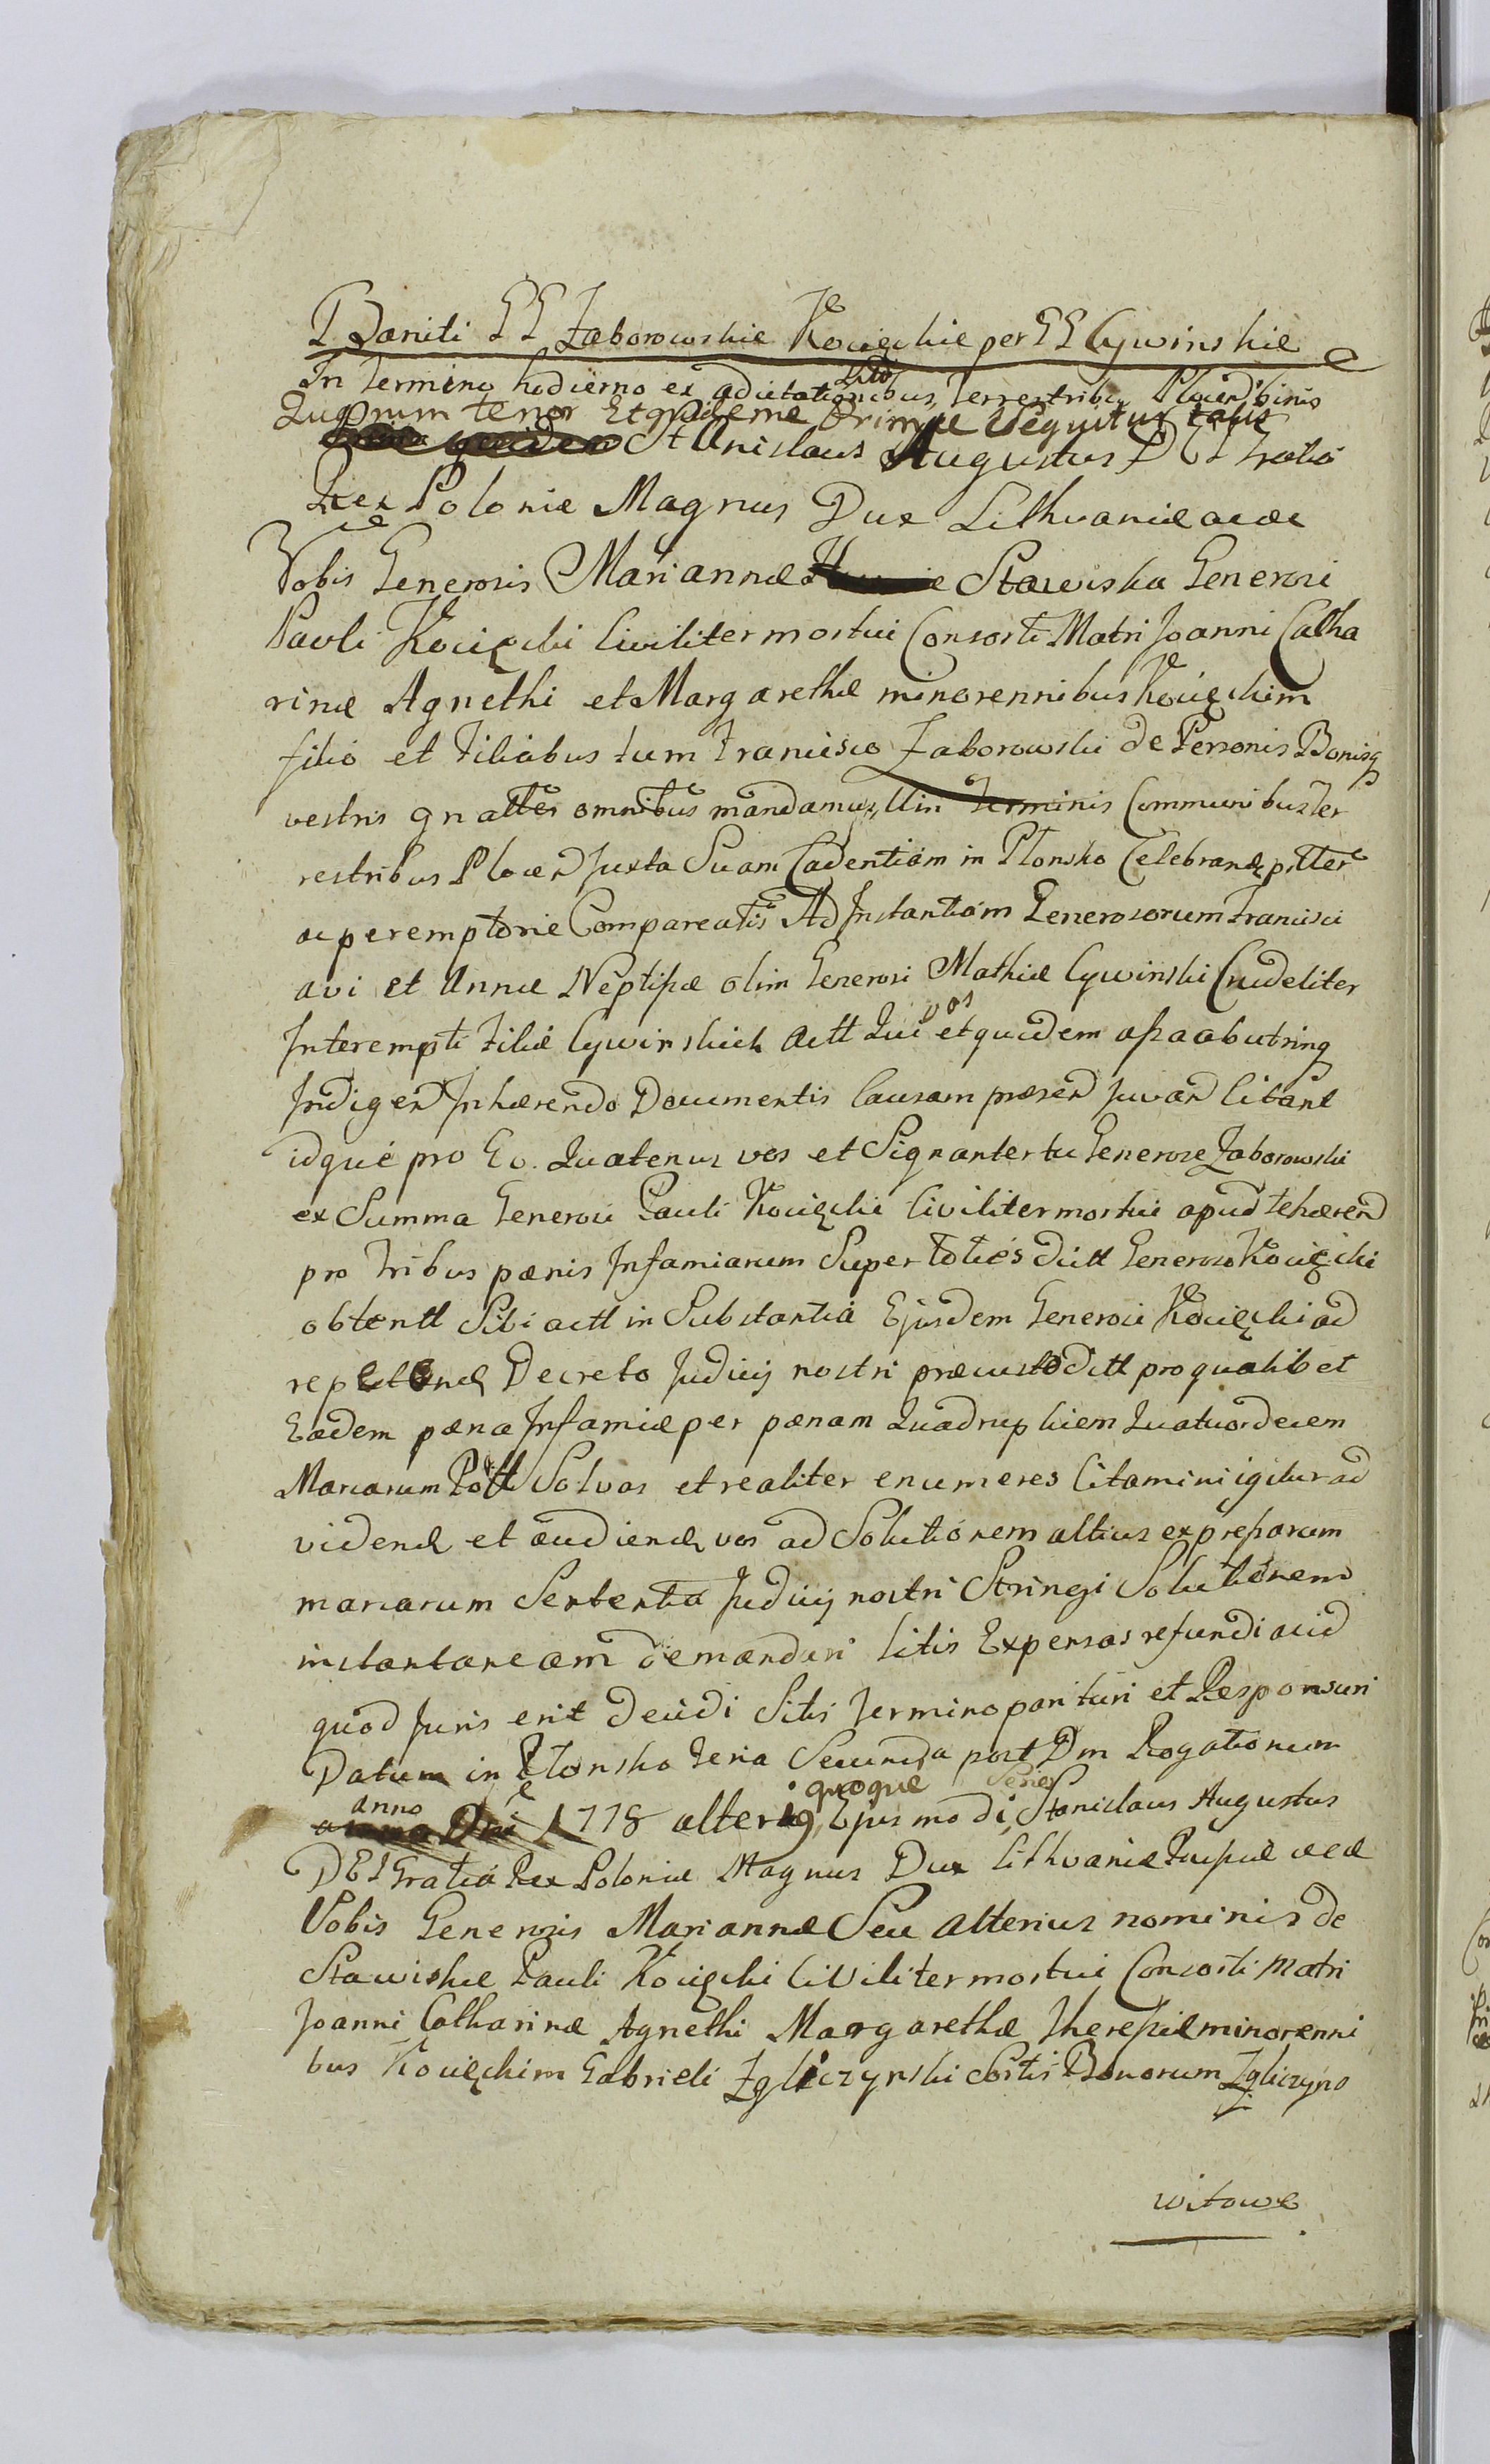 Baniti GG Zaborowskie Kocięckie per GG Cywinskie
In Termino hodierno ex adcitationibus Terrestribus Plocen binis
Quorum tenor Et quidem Primae Sequitur talis
Stanislaus Augustus DEI Gratia
Rex Poloniæ Magnus Dux Lithvaniæ
Vobis Generosis Mariannæ Stawiska Generosi
Pavli Kocięcki Civiliter mortui Consorti Matri Joanni Catha
rinæ Agnethi et Margarethæ minorennibus Kocięckim
filio et Filiabus tum Francisco Zaborowski de Personis Bonisq
vestris gnalter omnibus mandamus, Ut in Terminis Communibus Ter
restribus Plocen Juxta Suam Cadentiam in Plonsko Celebrand pltter
ac peremptorie Compareatis Ad Instantiam Generosorum Francisci
avi et Annæ Neptissæ olim Generosi Mathiæ Cywinski Crudeliter
Interempti Filiæ Cywinskich Actt Qui vos et quidem ipsa ab utrinq
Indigen Inhærendo Documentis Causam præsen Juvan Citant
idque pro Eo. Quatenus vos et Signanter tu Generose Zaborowski
ex Summa Generosi Pauli Kocięcki Civiliter mortui apud te hæren
pro tribus pænis Infamiarum Super toties dict Generoso Kocięcki
obtentt Sibi actt in Substantia Ejusdem Generosi Kocięcki ad
repetend Decreto Judicij nostri præcustoditt pro qualibet
Eadem pæna Infamiæ per pænam Quadruplicem Quatuordecem
Marcarum Pott Solvas et realiter enumeres Citamini igitur ad
videnđ et audienđ vos ad Solutionem altius expressarum
marcarum Sententia Judicij nostri Stringi Solutionem
instantaneam demandari Litis Expensas refundi acid
quod Juris erit decidi Sitis Termino parituri et Responsuri
Datum in Plonsko Feria Secunda post Dm Rogationum
anno 1778 alterius quoque Ejusmodi Series Stanislaus Augustus
DEI Gratia Rex Poloniæ Magnus Dux Lithvaniæ
Vobis Generosis Mariannæ Seu alterius nominis de
Stawiskie Pauli Kocięcki Civiliter mortui Consorti Matri
Joanni Catharinæ Agnethi Margarethæ Theressiæ minorenni
bus Kocięckim Gabrieli Zgliczynski Sortis Bonorum Zgliczyno
witowe